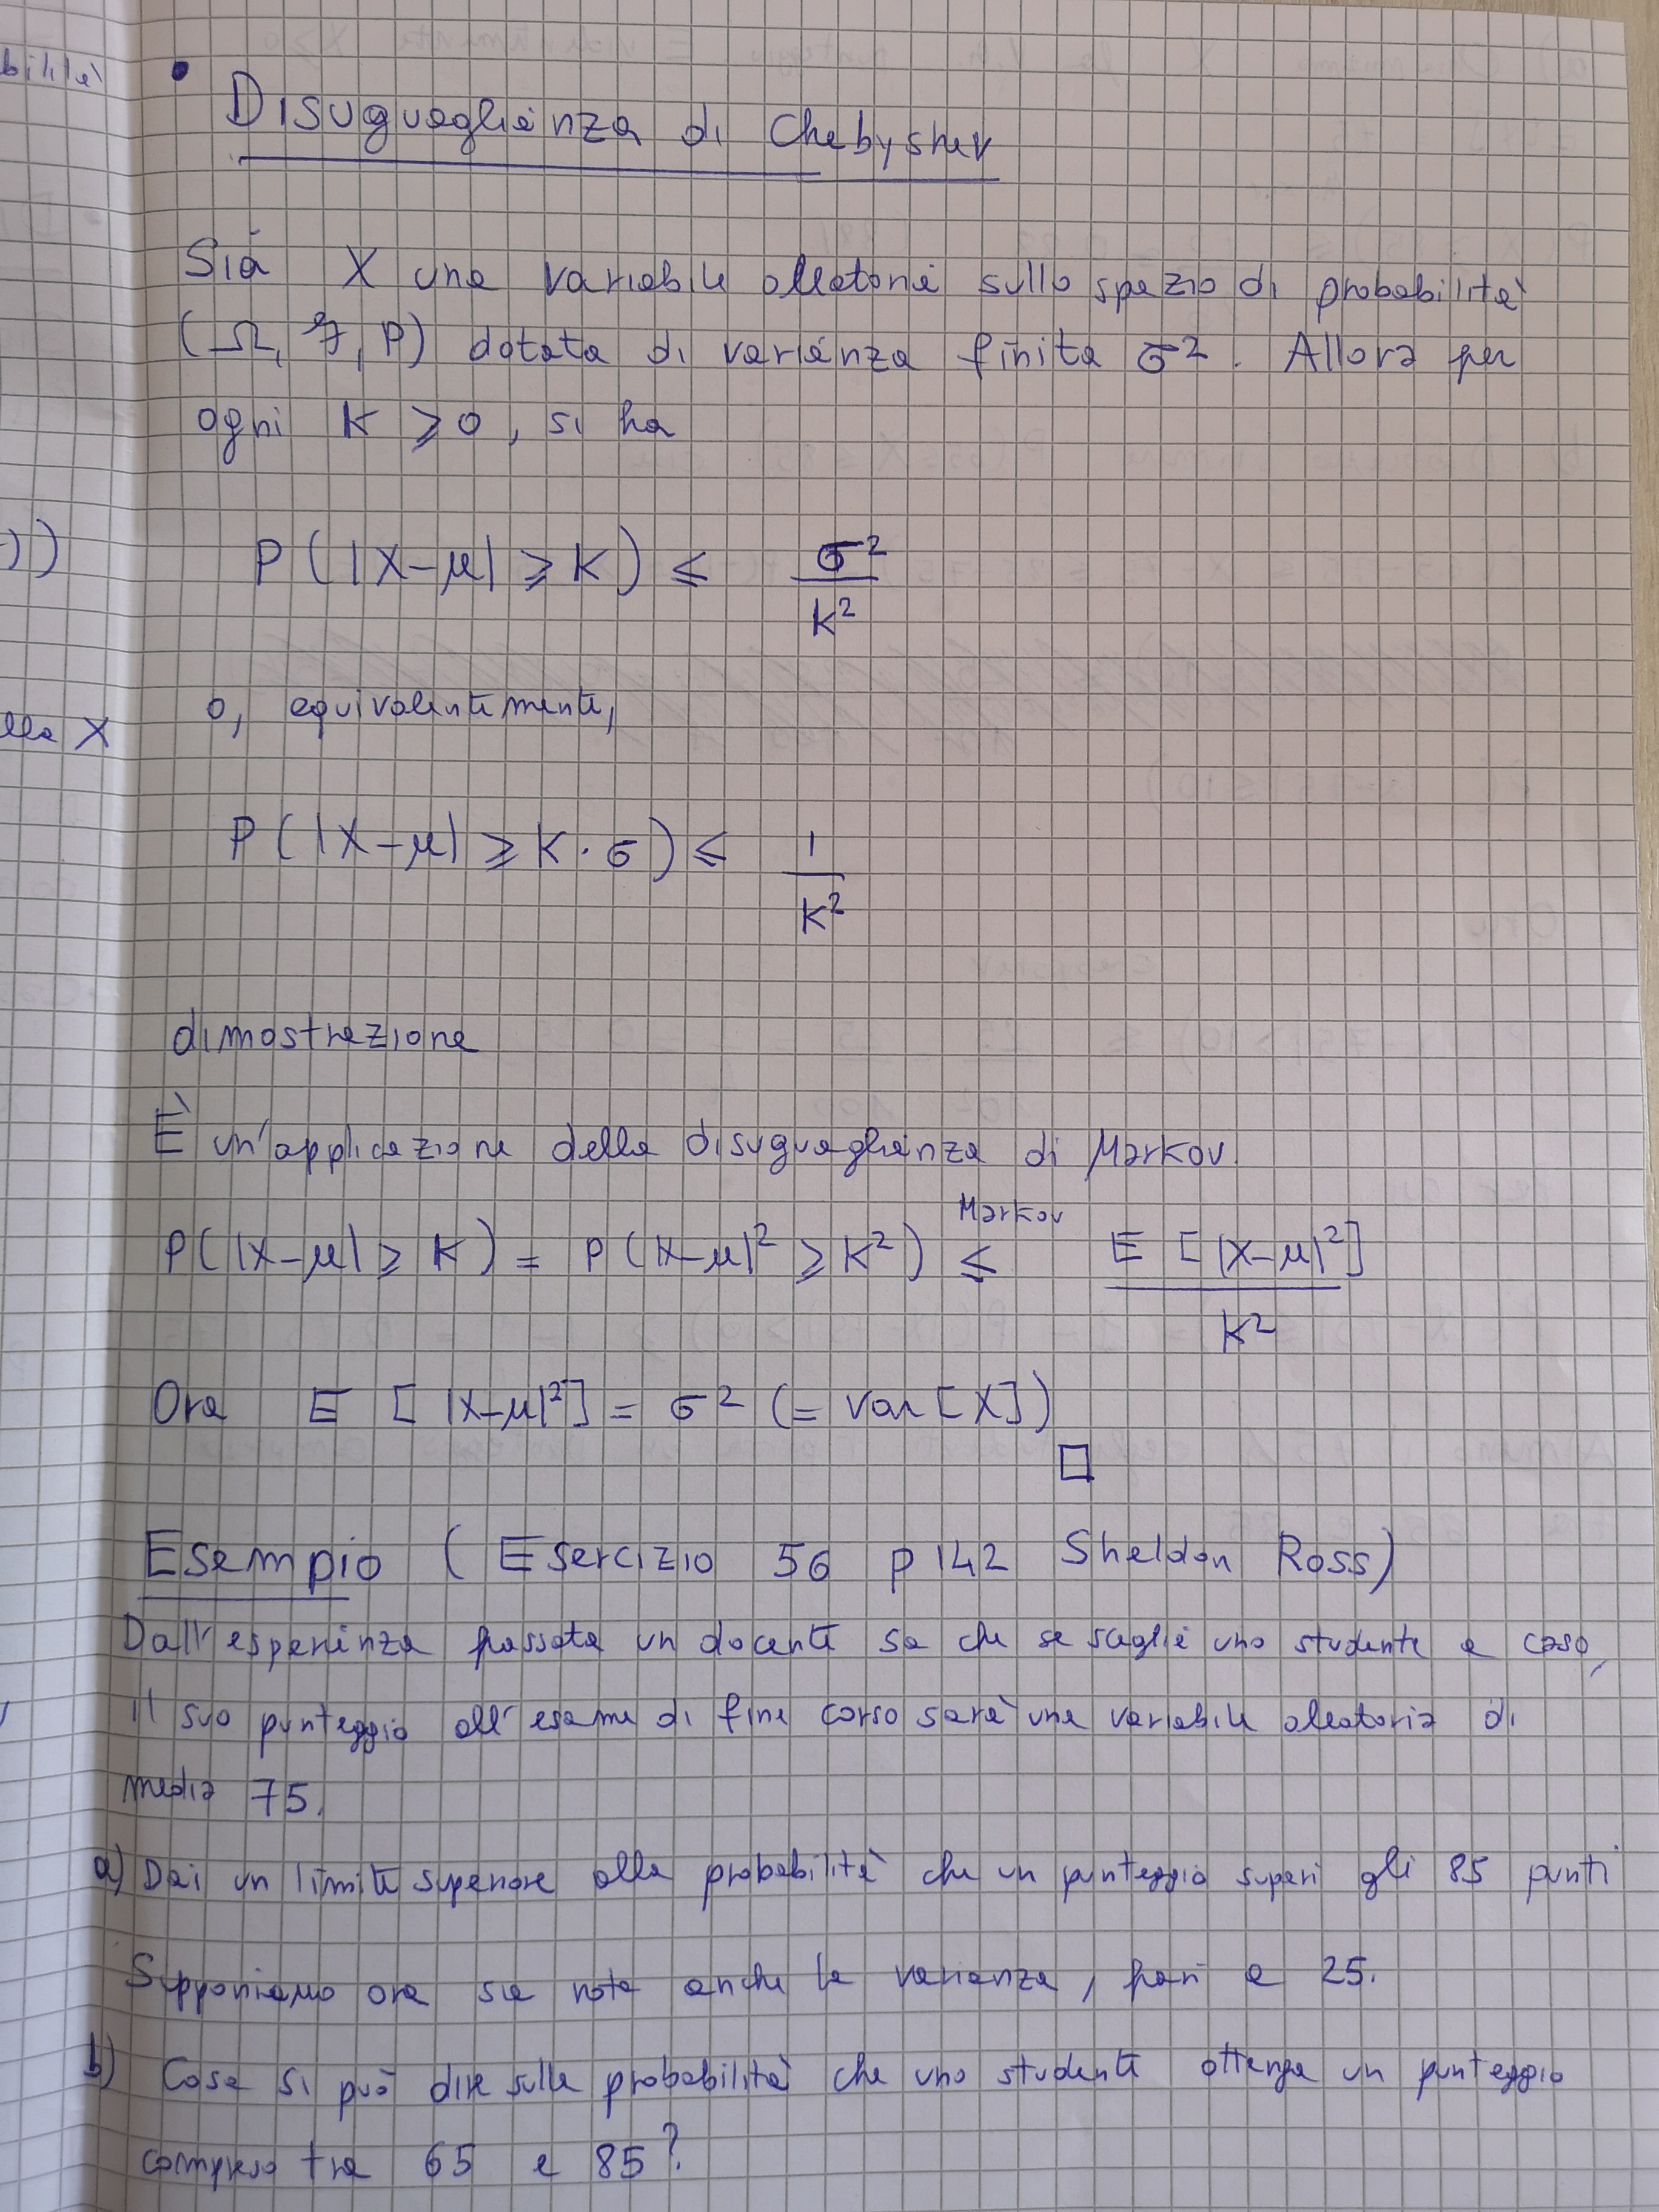 bilità
• Disuguaglianza di Chebyshev
Sia X una variabile aleatoria sullo spazio di probabilità
(Ω, F, P) dotata di varianza finita σ². Allora per
ogni K ⩾ 0, si ha
))
P(|X-μ| ⩾ K) ⩽ σ²/K²
o, equivalentemente,
lla X
P(|X-μ| ⩾ K·σ) ⩽ 1/K²
dimostrazione
È un'applicazione della disuguaglianza di Markov.
Markov
P(|X-μ| ⩾ K) = P(|X-μ|² ⩾ K²) ⩽ E[|X-μ|²]/K²
Ora E[|X-μ|²] = σ² (= Var[X])
□
Esempio (Esercizio 56 p 142 Sheldon Ross)
Dall'esperienza passata un docente sa che se sceglie uno studente a caso,
il suo punteggio all'esame di fine corso sarà una variabile aleatoria di
media 75.
a) Dai un limite superiore alla probabilità che un punteggio superi gli 85 punti
Supponiamo ora sia nota anche la varianza, pari a 25.
b) Cosa si può dire sulla probabilità che uno studente ottenga un punteggio
compreso tra 65 e 85?